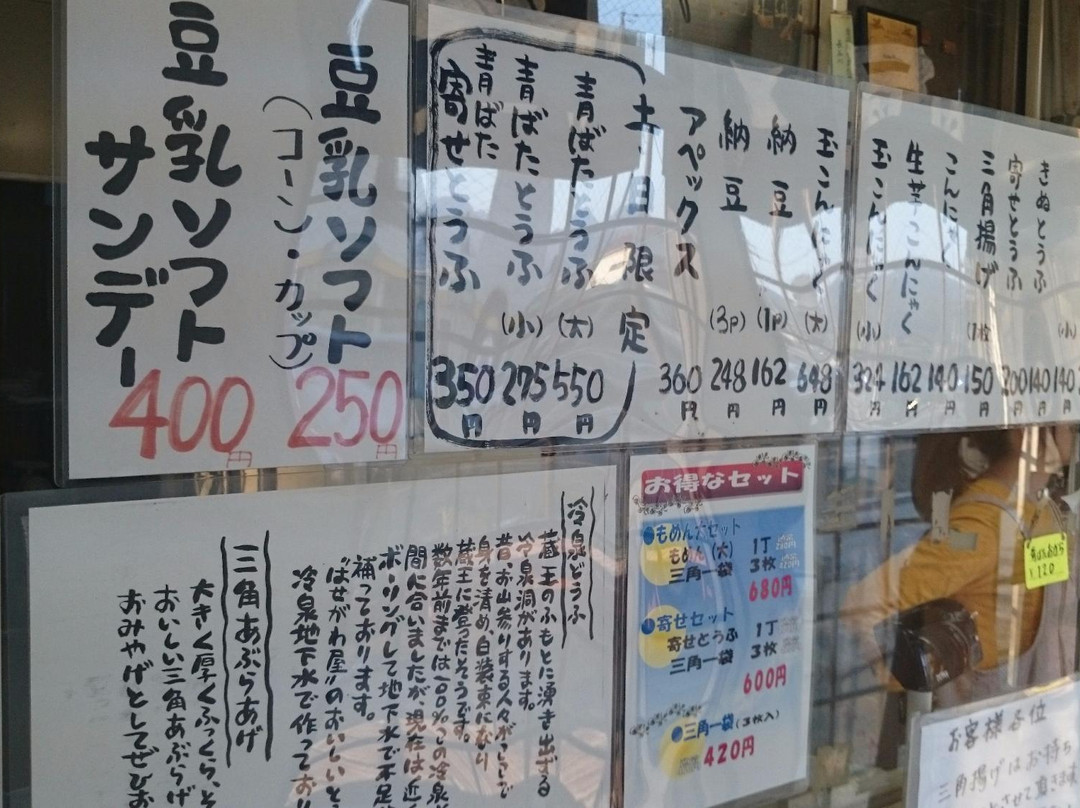 豆乳ソフト
(コーン・カップ)
250円
豆乳ソフト
サンデー
400円
土・日限定
青ばたとうふ (大) 550円
青ばたとうふ (小) 275円
青ばた
寄せとうふ 350円
アペックス 360円
納豆 (3P) 248円
納豆 (1P) 162円
玉こんにゃく (大) 648円
きぬとうふ (小) 140円
140
寄せとうふ 200円
三角揚げ (1枚) 150円
こんにゃく 140円
生芋こんにゃく 162円
玉こんにゃく (小) 324円
冷泉どうふ
蔵王のふもとに湧き出ずる
冷泉洞があります。
昔、お山参りする人々がここで
身を清め白装束になり
蔵王に登ったそうです。
数年前までは一〇〇%この冷泉
間に合いましたが、現在は近
ボーリングして地下水で不足
補っております。
"はせがわ屋"のおいしいと
冷泉地下水で作ってお
三角あぶらあげ
大きく厚くふっくら、そ
おいしい三角あぶらげ
おみやげとしてぜひお
お得なセット
●もめん大セット
もめん(大) 1丁
三角一袋 3枚
680円
●寄せセット
寄せとうふ 1丁
三角一袋 3枚
600円
●三角一袋(3枚入)
420円
¥120
お客様各位
三角揚げはお持ち
させて頂きます